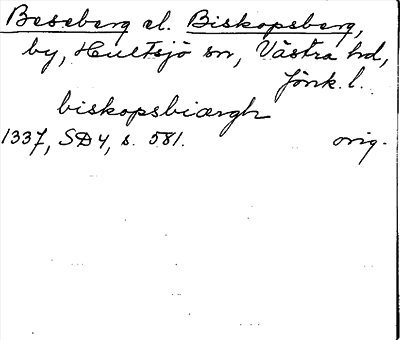 Beseberg el. Biskopsberg,
by, Hultsjö sn, Västra hd,
Jönk. l.
biskopsbiærgh
1337, SD4, s. 581. orig.